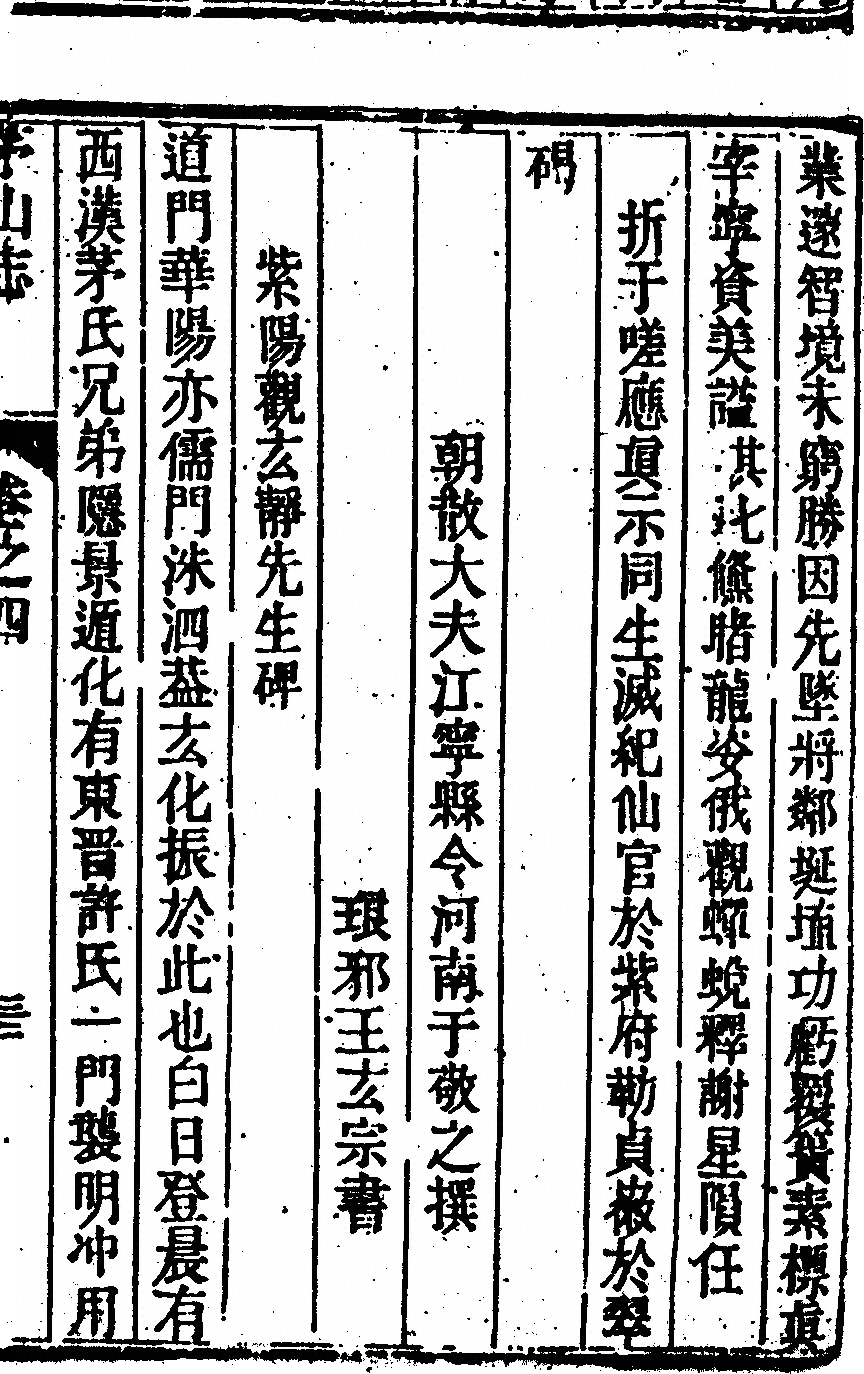 業邃智境未窮勝因先墜將鄰埏埴功虧覆簣素標真
宰寧資美謚其七儵睹龍姿俄觀蟬蛻釋謝星隕任
折于嗟應真示同生滅紀仙官於紫府勒貞㩲於翠
碣
朝散大夫江寧縣令河南于敬之撰
琅邪王玄宗書
紫陽觀玄靜先生碑
道門華陽亦儒門洙泗葢玄化振於此也白日登晨有
西漢茅氏兄弟隱景遁化有東晉許氏一門襲明冲用
茅山志 卷之四 三